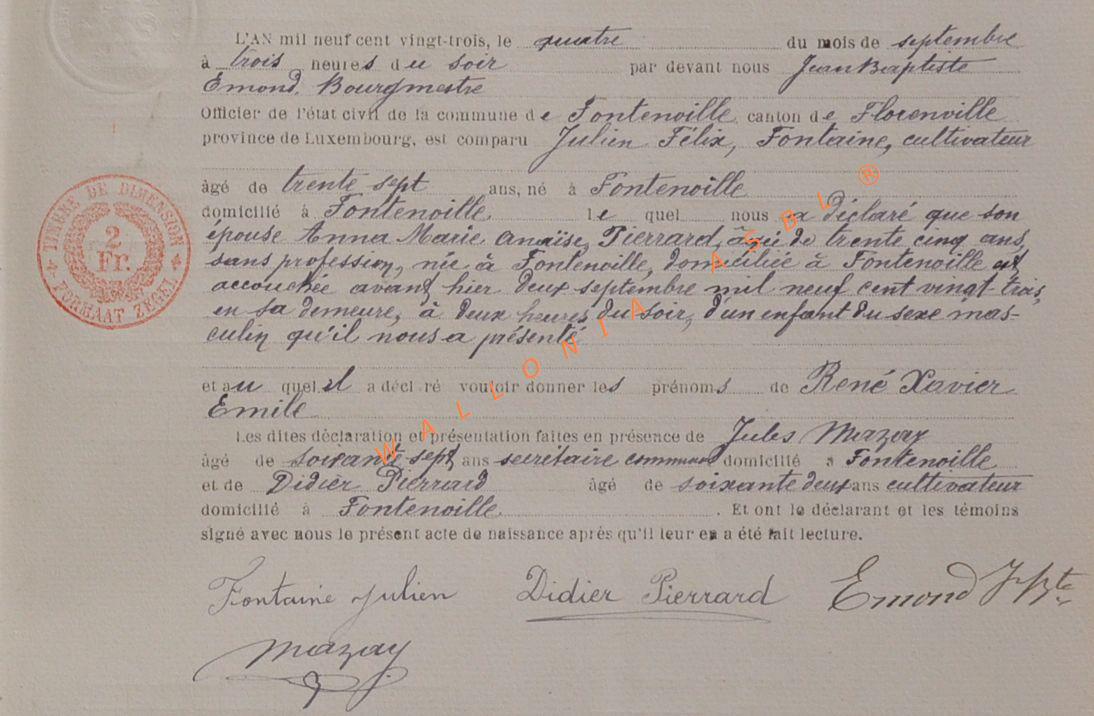 L'AN mil neuf cent vingt-trois, le quatre du mois de septembre
à trois heures du soir par devant nous Jean Baptiste
Emond, Bourgmestre
Officier de l'état civil de la commune de Fontenoille, canton de Florenville
province de Luxembourg, est comparu Julien Félix, Fontaine, cultivateur
âgé de trente sept ans, né à Fontenoille
domicilié à Fontenoille, le quel nous a déclaré que son
épouse Anna Marie Anaïse, Pierrard, âgée de trente cinq ans,
sans profession, née à Fontenoille, domiciliée à Fontenoille est
accouchée avant hier deux septembre mil neuf cent vingt trois,
en sa demeure, à deux heures du soir, d'un enfant du sexe mas-
culin qu'il nous a présenté
et au quel il a déclaré vouloir donner les prénoms de René Xavier
Emile
Les dites déclaration et présentation faites en présence de Jules Mazay
âgé de soixante sept ans secrétaire communal domicilié à Fontenoille
et de Didier Pierrard âgé de soixante deux ans cultivateur
domicilié à Fontenoille. Et ont le déclarant et les témoins
signé avec nous le présent acte de naissance après qu'il leur en a été fait lecture.
Fontaine Julien Didier Pierrard Emond J Bte
Mazay
TIMBRE DE DIMENSION
2
Fr.
FORMAAT ZEGEL
WALLONIA ASBL ®